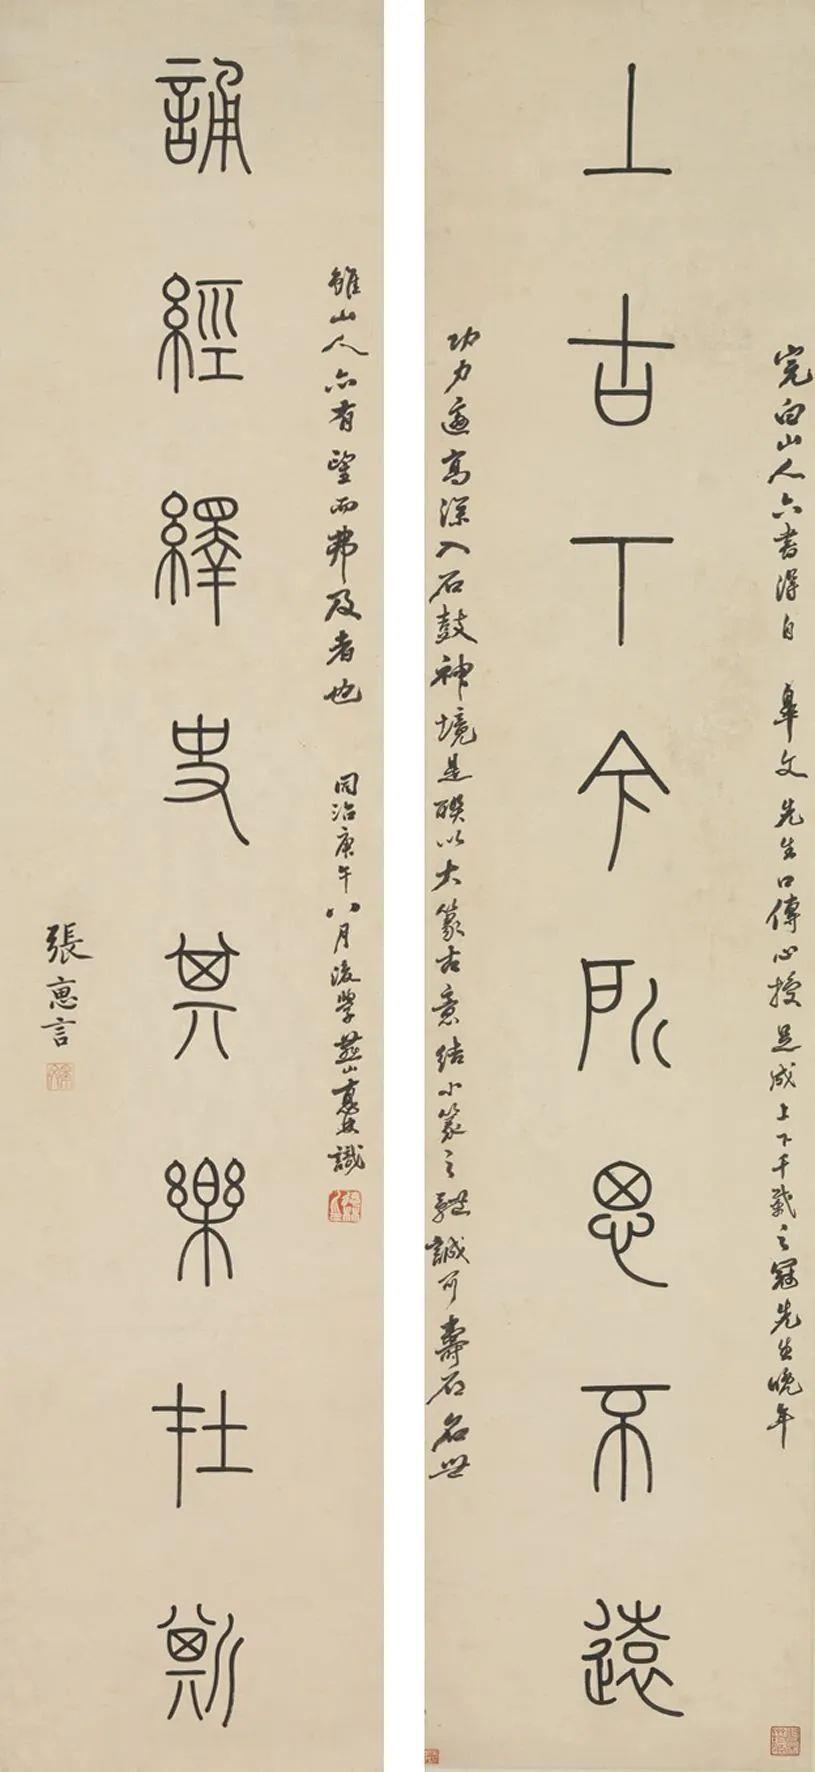 完白山人六書得自 皋文先生口傳心授是成上下千載之冠先生晚年
上古下今所思不遠
功力高深入石鼓神境是聯以大篆古意結小篆之軆誠可壽石名世
雖山人亦有望而弗及者也 同治庚午八月後學燕山識
誦經繹史其樂在斯
張惠言